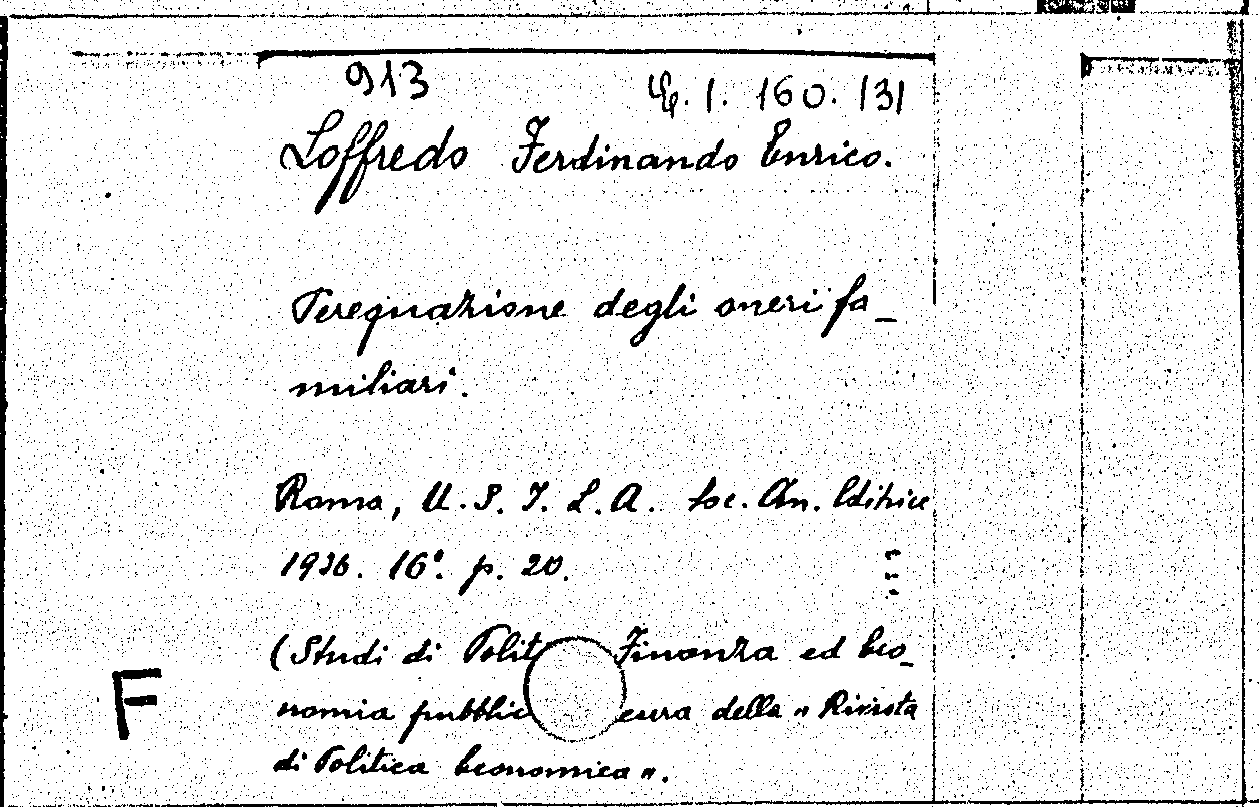 913 4. 1. 160. 131
Loffredo Ferdinando Enrico.
Perequazione degli oneri fa_
miliari.
Roma, U. S. I. L. A. Soc. An. Editrice
1936. 16°. p. 20.
(Studi di Polit Finanza ed Eco_
nomia pubblic cura della "Rivista
di Politica Economica".
F